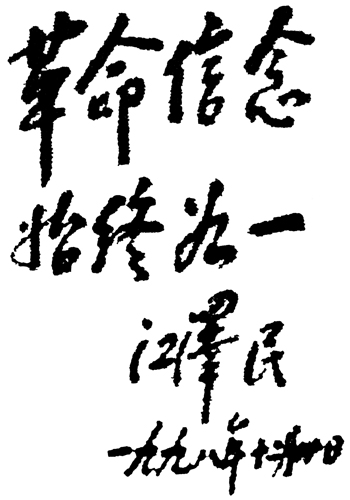 革命信念
始终如一
江澤民
一九九八年十月日